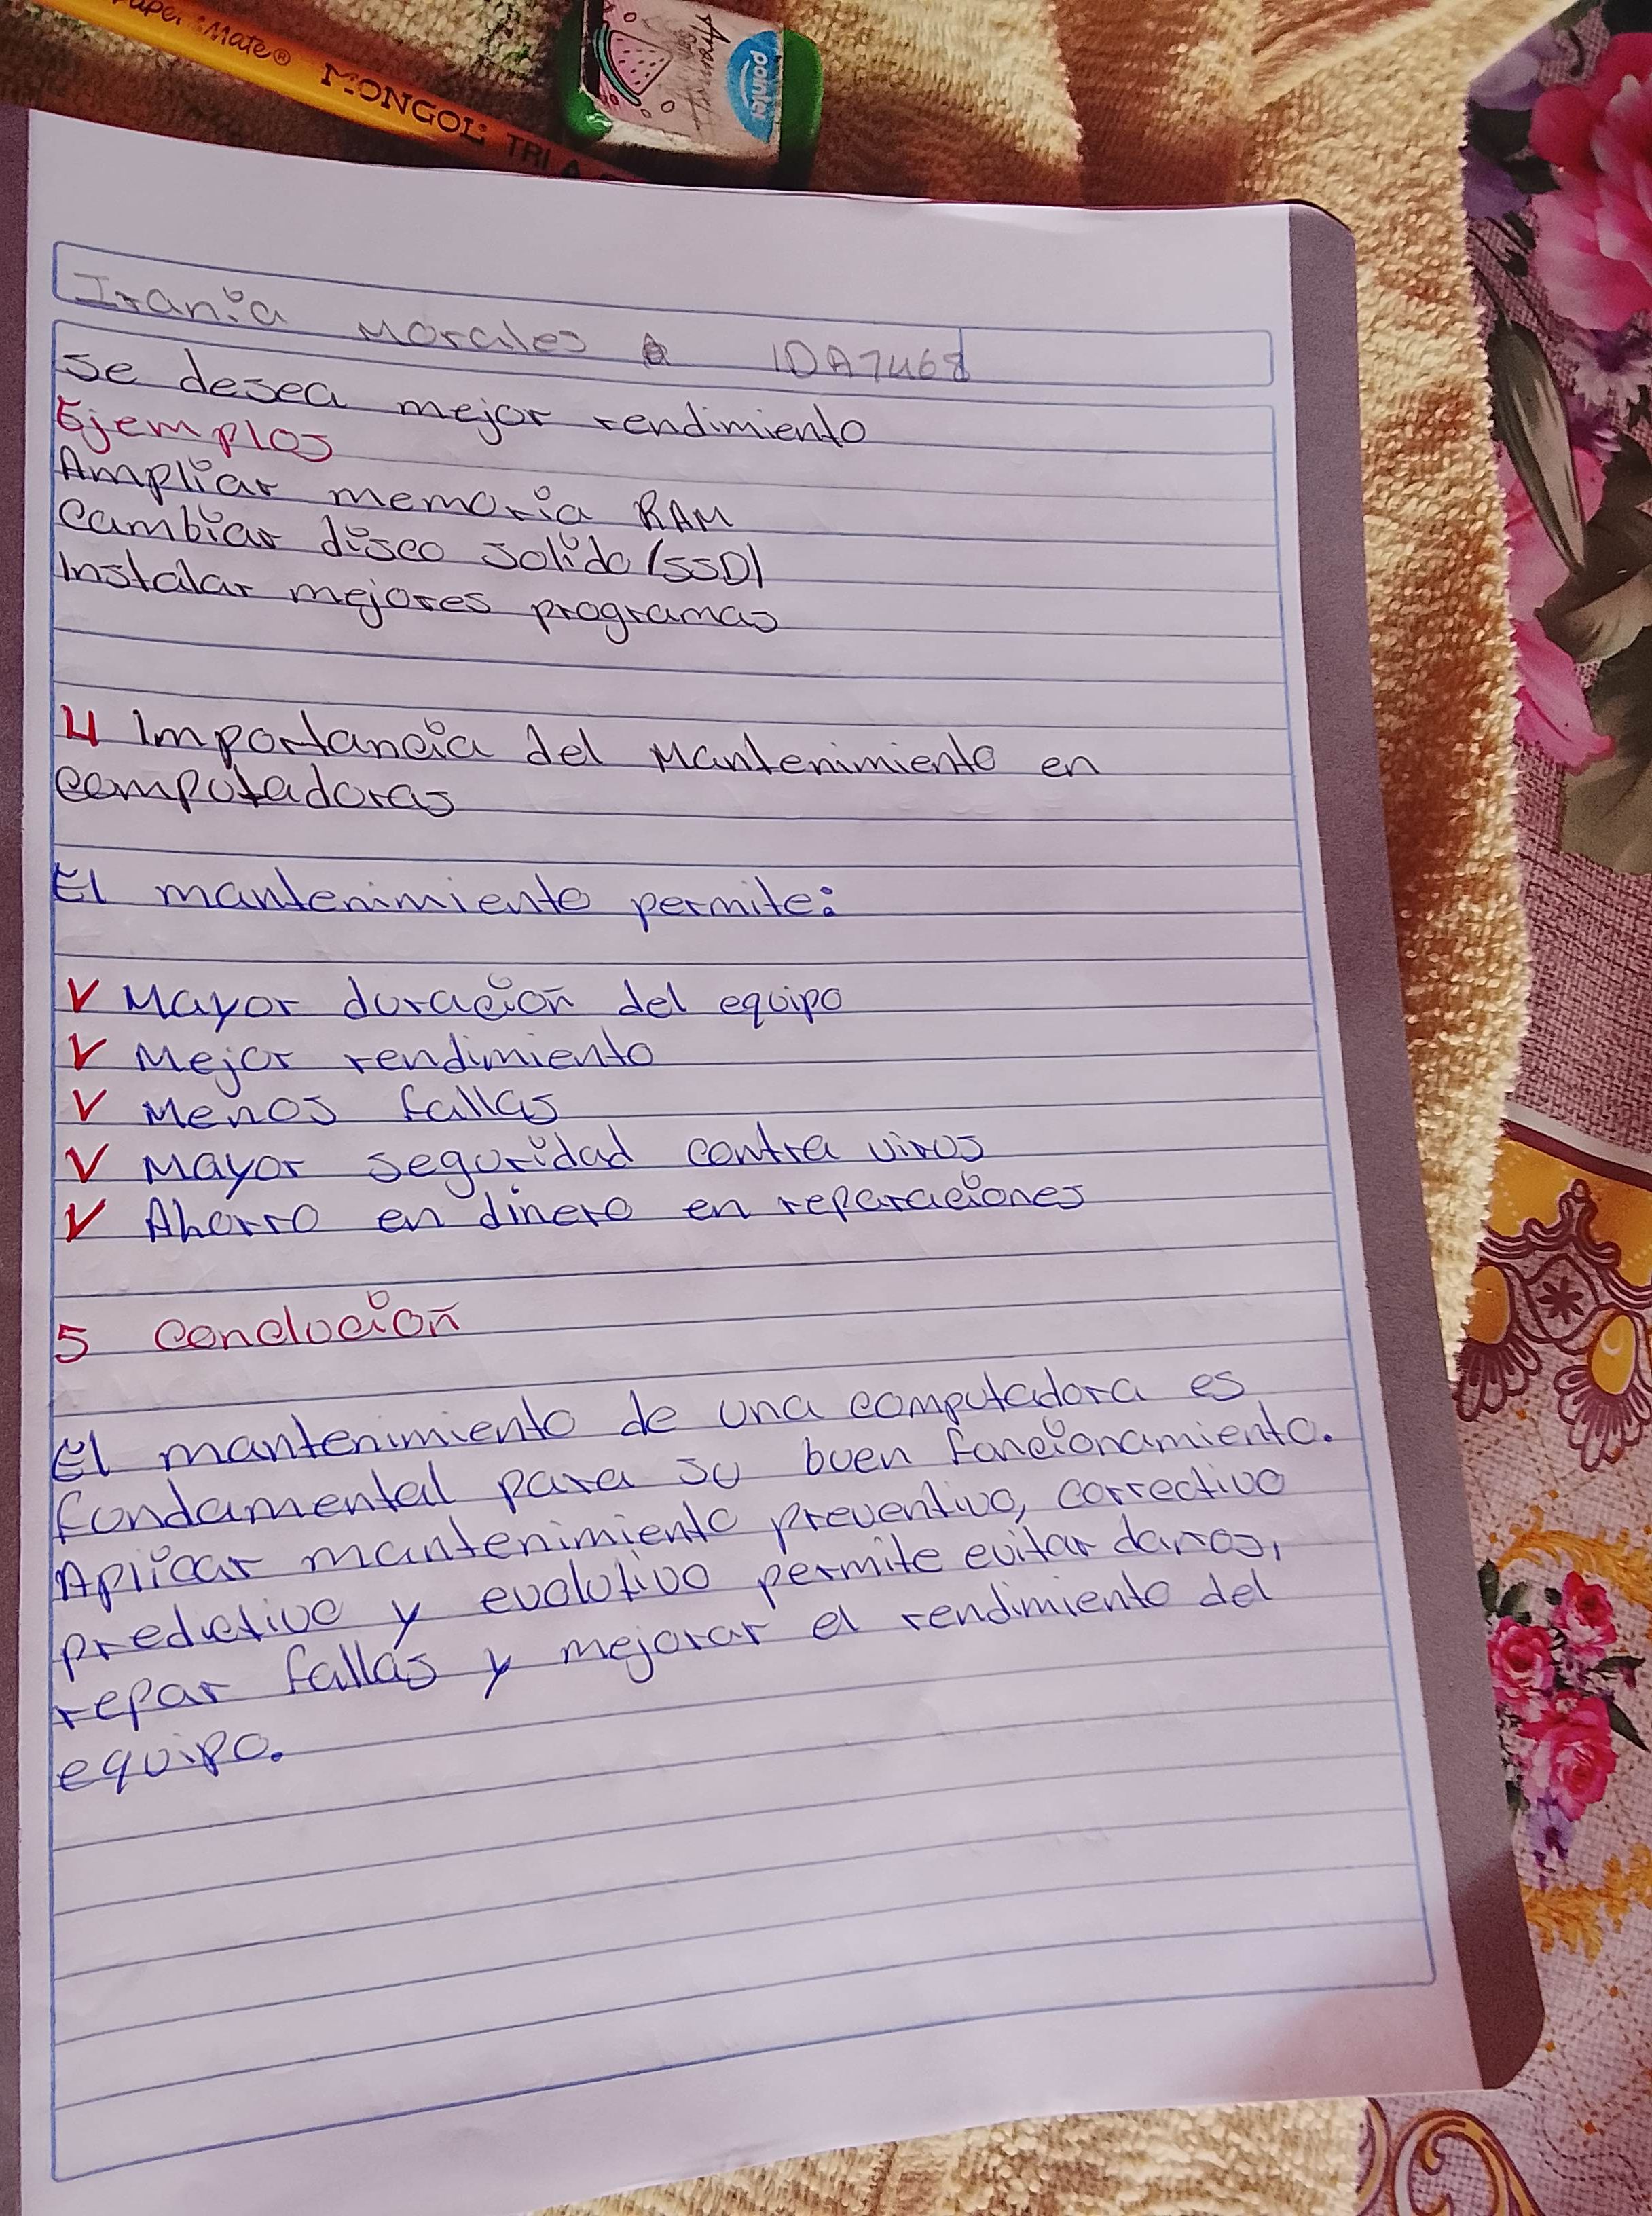 Paper Mate® MONGOL TRI
pointer
Irania Morales A IDA7468
se desea mejor rendimiento
Ejemplos
Ampliar memoria RAM
Cambiar disco solido (SSD)
Instalar mejores programas
4 Importancia del Mantenimiento en
computadoras
El mantenimiento permite:
V Mayor duración del equipo
V Mejor rendimiento
V Menos fallas
V Mayor seguridad contra virus
V Ahorro en dinero en reparaciones
5 Conclución
El mantenimiento de una computadora es
fundamental para su buen funcionamiento.
Aplicar mantenimiento preventivo, correctivo
predictivo y evolutivo permite evitar daños,
repar fallas y mejorar el rendimiento del
equipo.